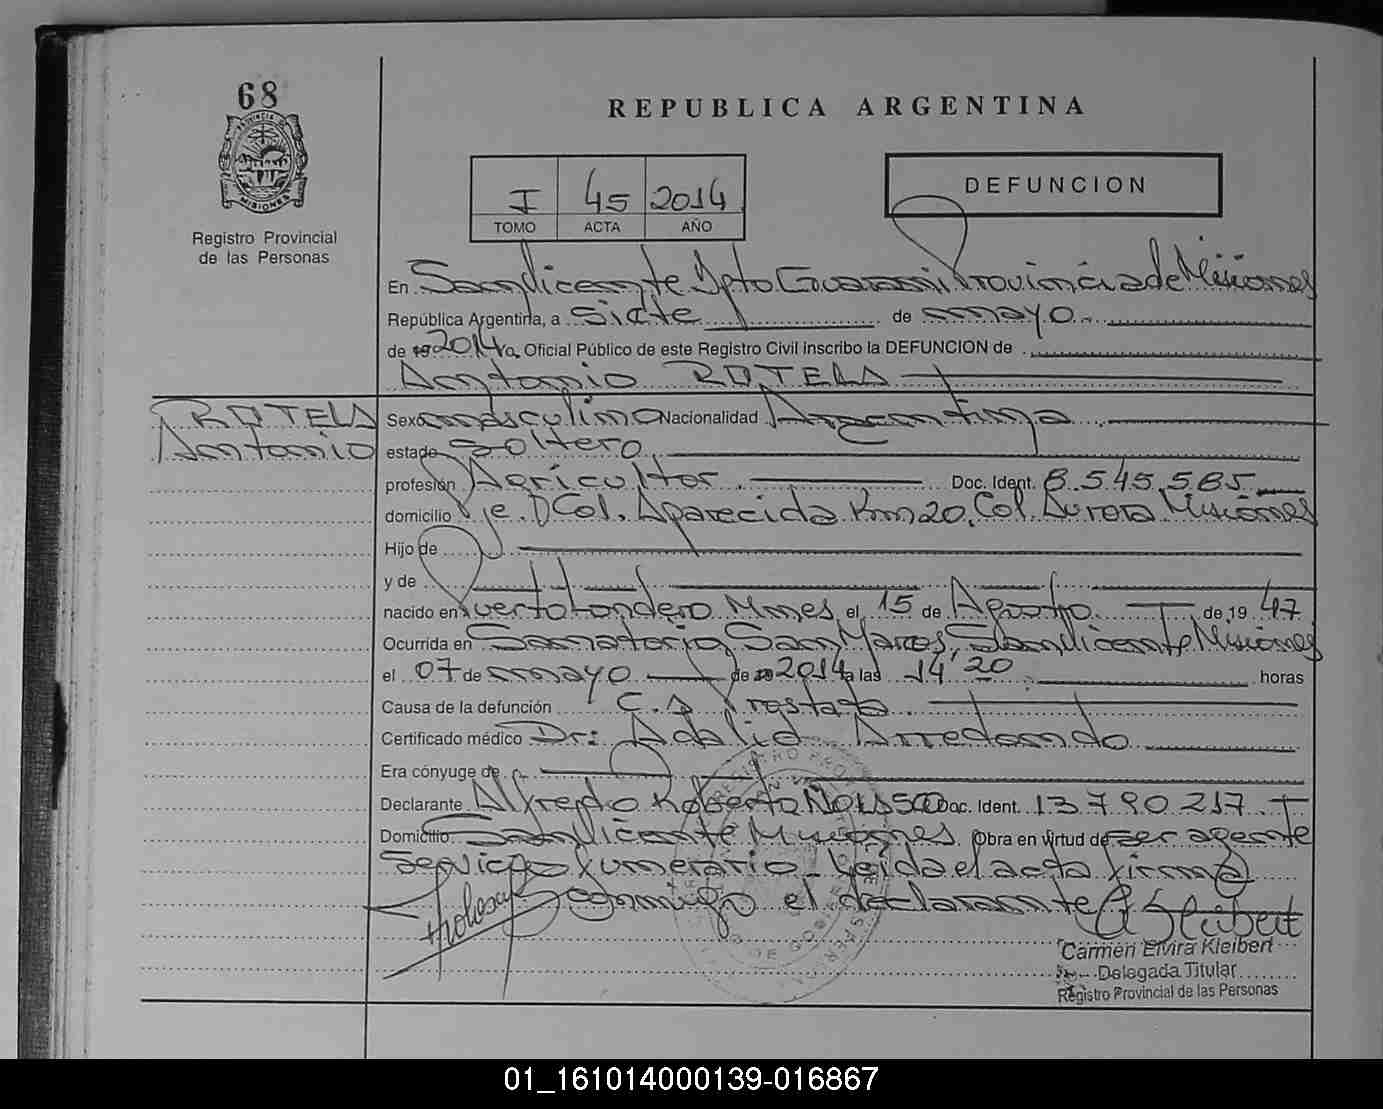 68
PROVINCIA DE
MISIONES
Registro Provincial
de las Personas
REPUBLICA ARGENTINA
I 45 2014
TOMO ACTA AÑO
DEFUNCION
En San Vicente Dpto Guarani Provincia de Misiones
República Argentina, a siete de mayo
de 19 2014 Oficial Público de este Registro Civil inscribo la DEFUNCION de
Antonio ROTELA
ROTELA
Antonio
Sexo masculino Nacionalidad Argentina
estado soltero
profesión Agricultor Doc. Ident. 8.545.585
domicilio Pje. Col. Aparecida Km 20, Col. Aurora Misiones
Hijo de
y de
nacido en Puerto Londero Mnes el 15 de Agosto de 19 47
Ocurrida en Sanatorio San Marcos, San Vicente Misiones
el 07 de mayo de 19 2014 a las 14 20 horas
Causa de la defunción C.a Prostata
Certificado médico Dr: Adalid Arredondo
Era cónyuge de
Declarante Alfredo Roberto Doc. Ident. 13.790.217
Domicilio San Vicente Misiones. Obra en virtud de ser agente
Servicio funerario. Leida el acta firma
conmigo el declarante
Carmen Elvira Kleibert
Delegada Titular
Registro Provincial de las Personas
01_161014000139-016867